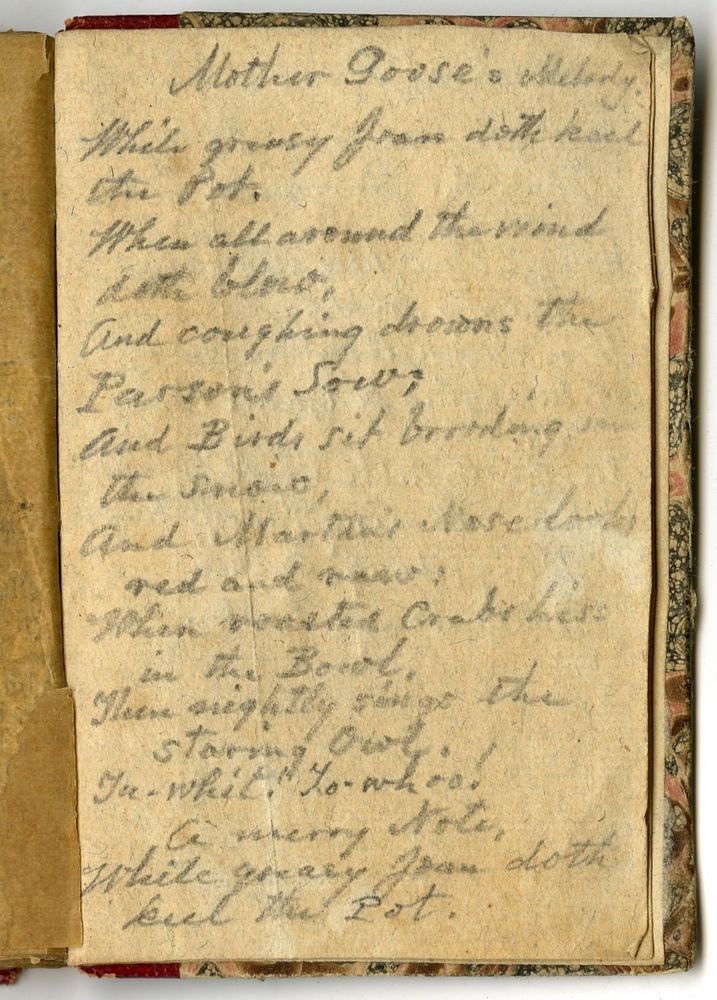 Mother Goose's Melody.
While greasy Joan doth keel
the Pot.
When all around the wind
doth blow,
And coughing drowns the
Parson's Sow;
And Birds sit brooding in
the snow,
And Martin's Nose looks
red and raw:
When roasted Crabs hiss
in the Bowl,
Then nightly sings the
staring Owl,
Tu-whit! To-whoo!
A merry Note,
While greasy Joan doth
keel the Pot.